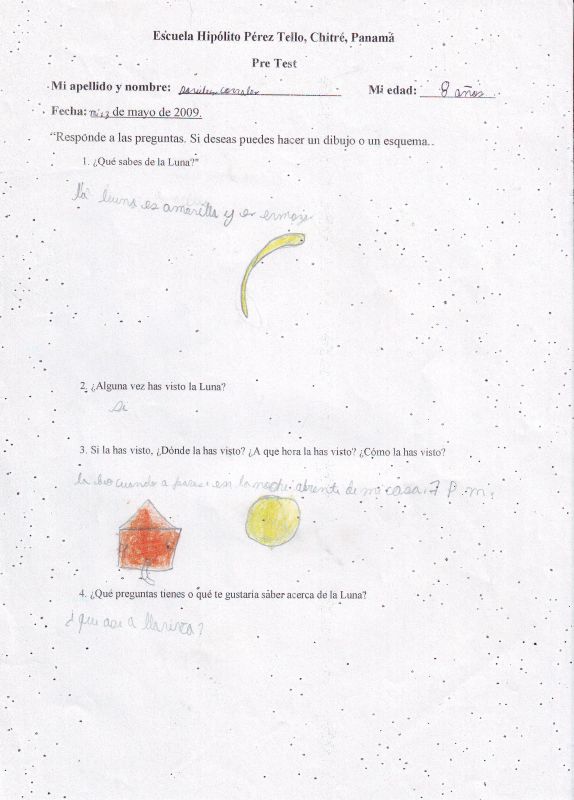 Escuela Hipólito Pérez Tello, Chitré, Panamá
Pre Test
Mi apellido y nombre: Mi edad: 8 años
Fecha: de mayo de 2009.
"Responde a las preguntas. Si deseas puedes hacer un dibujo o un esquema..
1. ¿Qué sabes de la Luna?"
la luna es amarilla y es ermosa
2. ¿Alguna vez has visto la Luna?
Si
3. Si la has visto, ¿Dónde la has visto? ¿A que hora la has visto? ¿Cómo la has visto?
la beo cuando a en la noche de mi casa. 7 P. m.
4. ¿Qué preguntas tienes o qué te gustaría saber acerca de la Luna?
¿que ase a